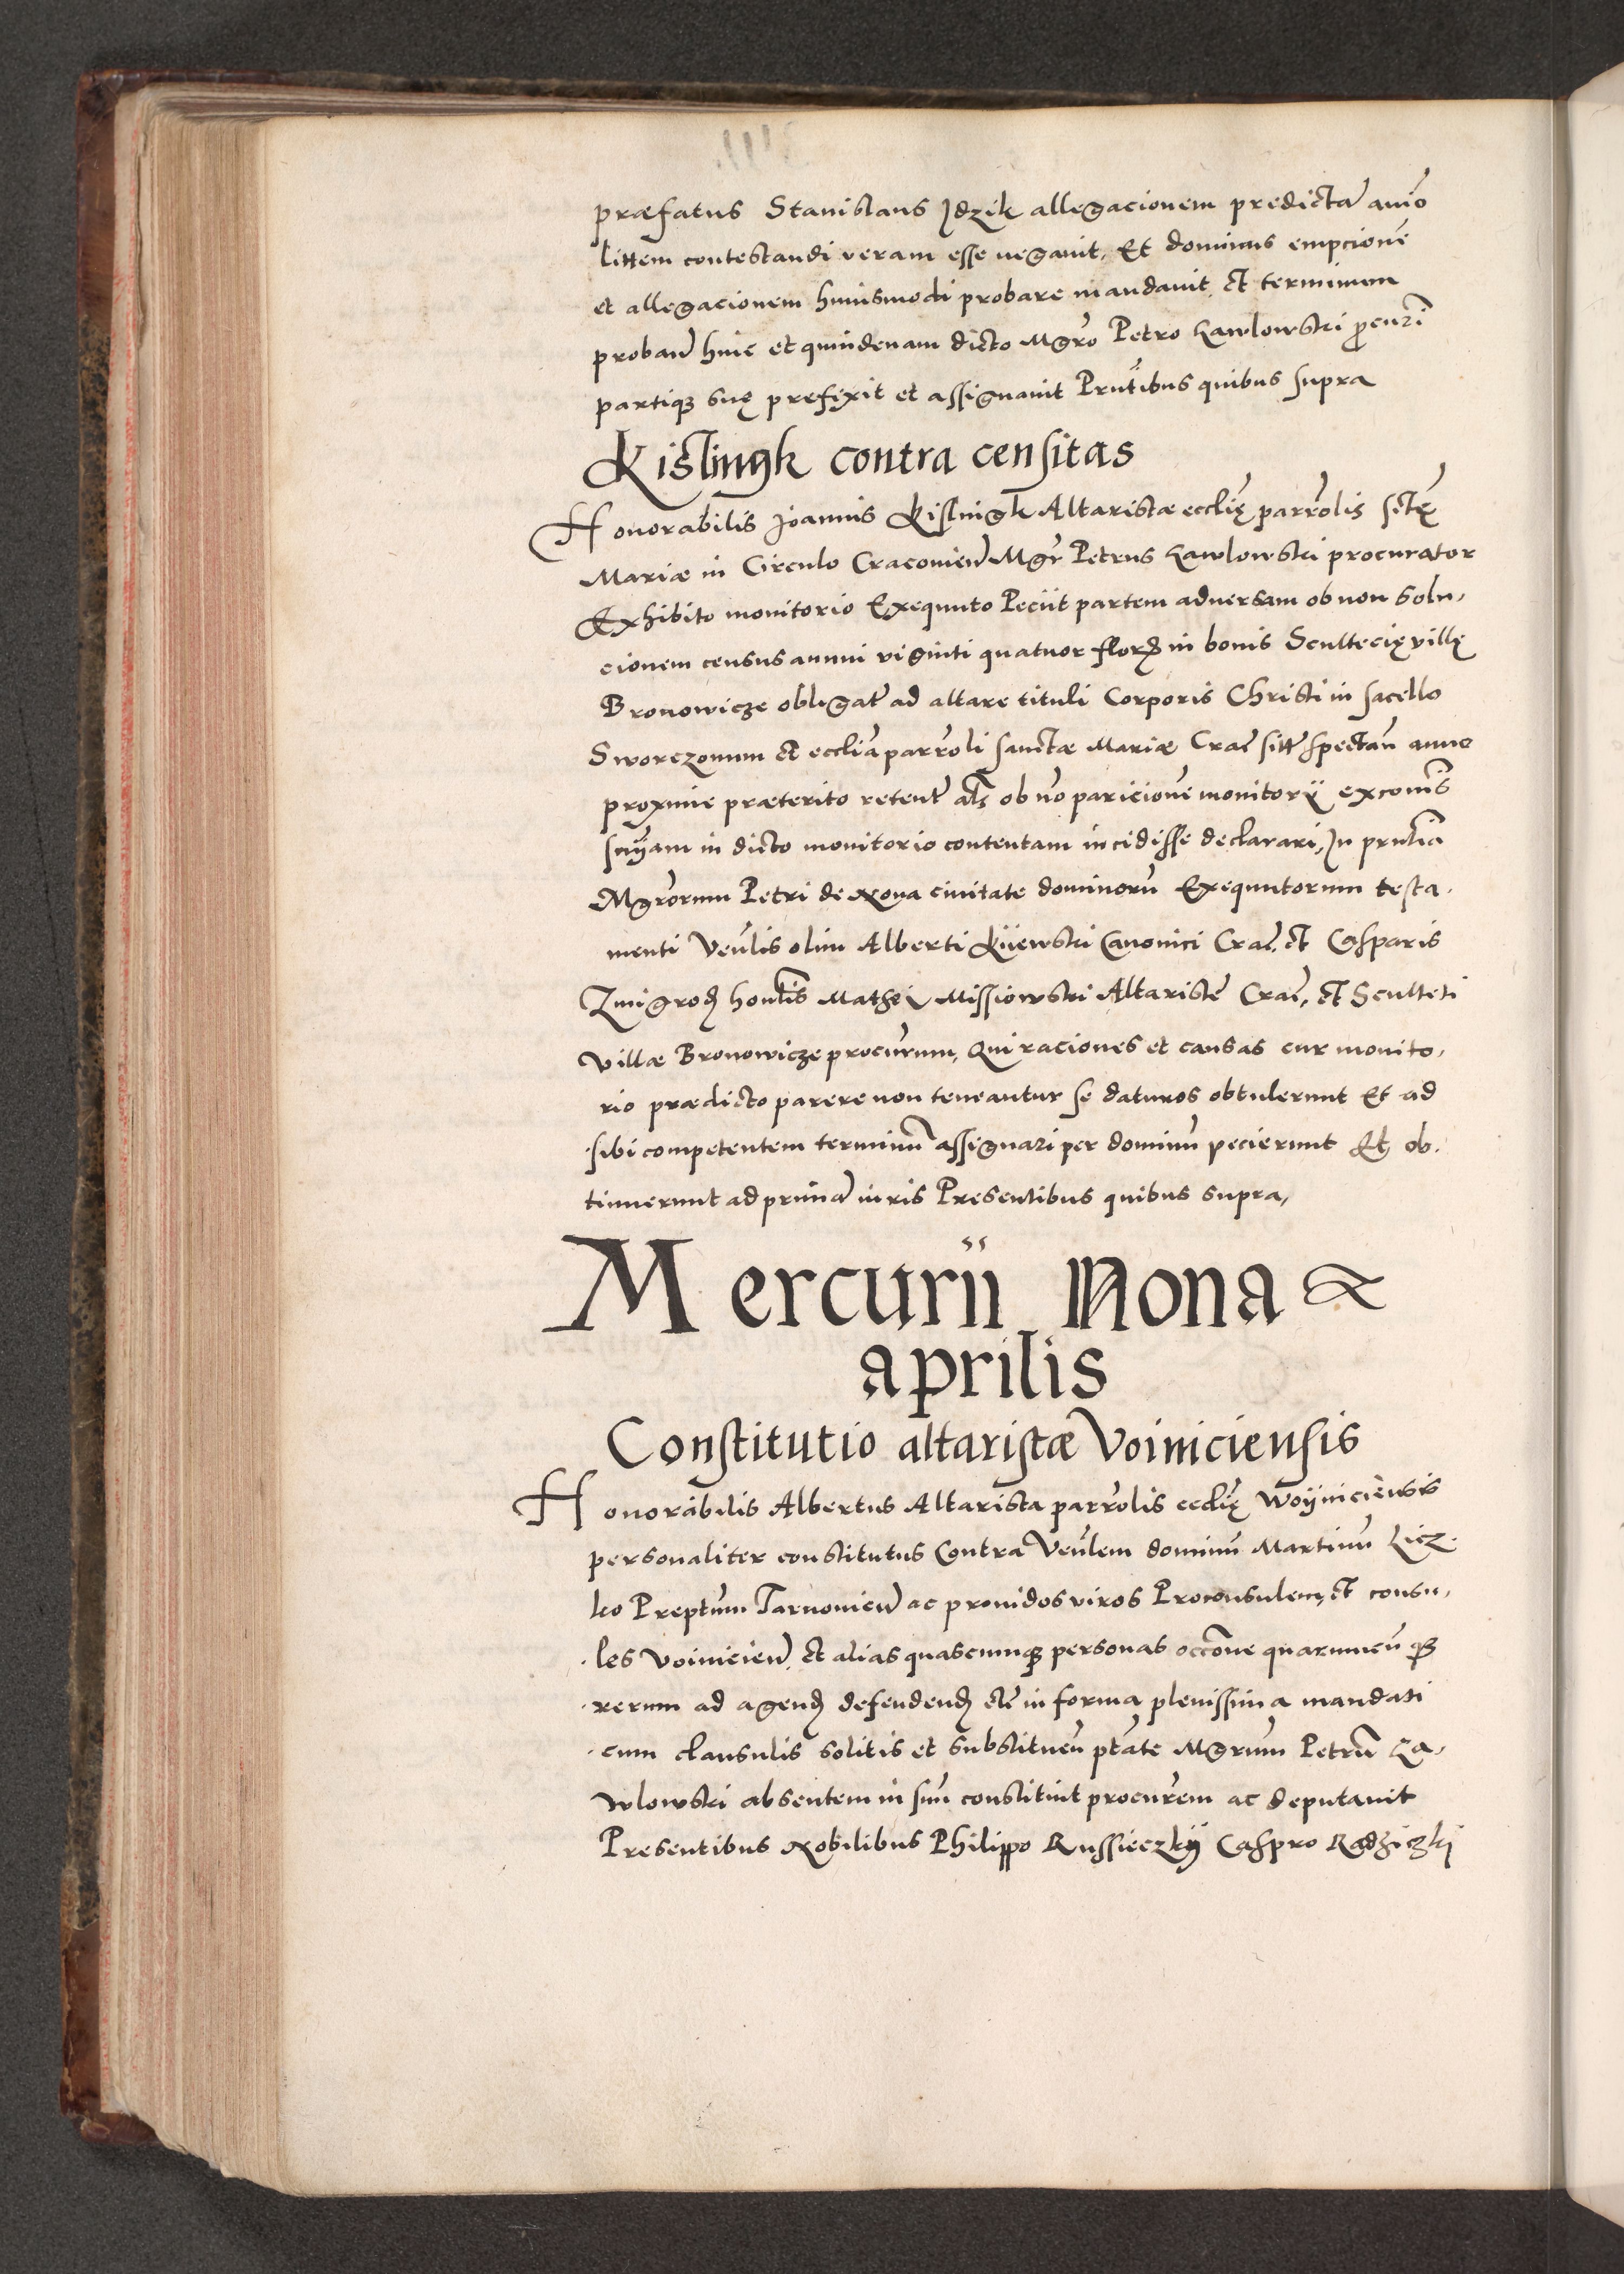 præfatus Stanislaus Jdzik allegacionem predictã animo
littem contestandi veram esse negauit, Et dominus empcionẽ
et allegacionem huiusmodi probare mandauit, et terminum
proband hinc et quindenam dicto Mgro Petro Lawlowski procuri
partiqȝ suę prefixit et assignauit Prntibus quibus supra
Kislingk contra censitas
Honorabilis Joannis Kislingk Altaristæ ecclię parrolis sctę
Mariæ in Circulo Cracouien Mgr Petrus Lawlowski procurator
Exhibito monitorio Exequuto Peciit partem aduersam ob non solu,
cionem census annui viginti quatuor florȝ in bonis Scultecię villę
Bronowicze obligat ad altare tituli Corporis Christi in sacello
Sworczonum et eccliã parroli sanctæ Mariæ Crac sitt spectan anno
proxime præterito retent als ob nõ paricionẽ monitorij excomis
snÿam in dicto monitorio contentam incidisse declarari, In prntia
Mgrorum Petri de Noua ciuitate dominorũ Exequutorum testa,
menti Venlis olim Alberti Kÿewski Canonici Crac, et Casparis
Zmigrod honlis Mathei Missiowski Altaristę Crac, et Sculteti
Villæ Bronowicze procurum, Qui raciones et causas cur monito,
rio prædicto parere non teneantur se daturos obtulerunt Et ad
sibi competentem terminũ assignari per dominũ pecierunt Et ob,
tinuerunt ad primã iuris Presentibus quibus supra,
Mercurii Nona
aprilis
Constitutio altaristæ Voiniciensis
Honorabilis Albertus Altarista parrolis ecclię Woÿniciensis
personaliter constitutus Contra Venlem dominũ Martinũ Licz,
ko Preptum Tarnouien ac prouidos viros Proconsulem, et consu,
les Voinicien, et alias quascumqȝ personas occone quarumcũqȝ
rerum ad agend defendend etc in forma plenissima mandati
cum clausulis solitis et substituen ptate Mgrum Petrũ La,
wlowski absentem in suũ constituit procurem ac deputauit
Presentibus Nobilibus Philippo Russieczkÿ Caspro Radziczki